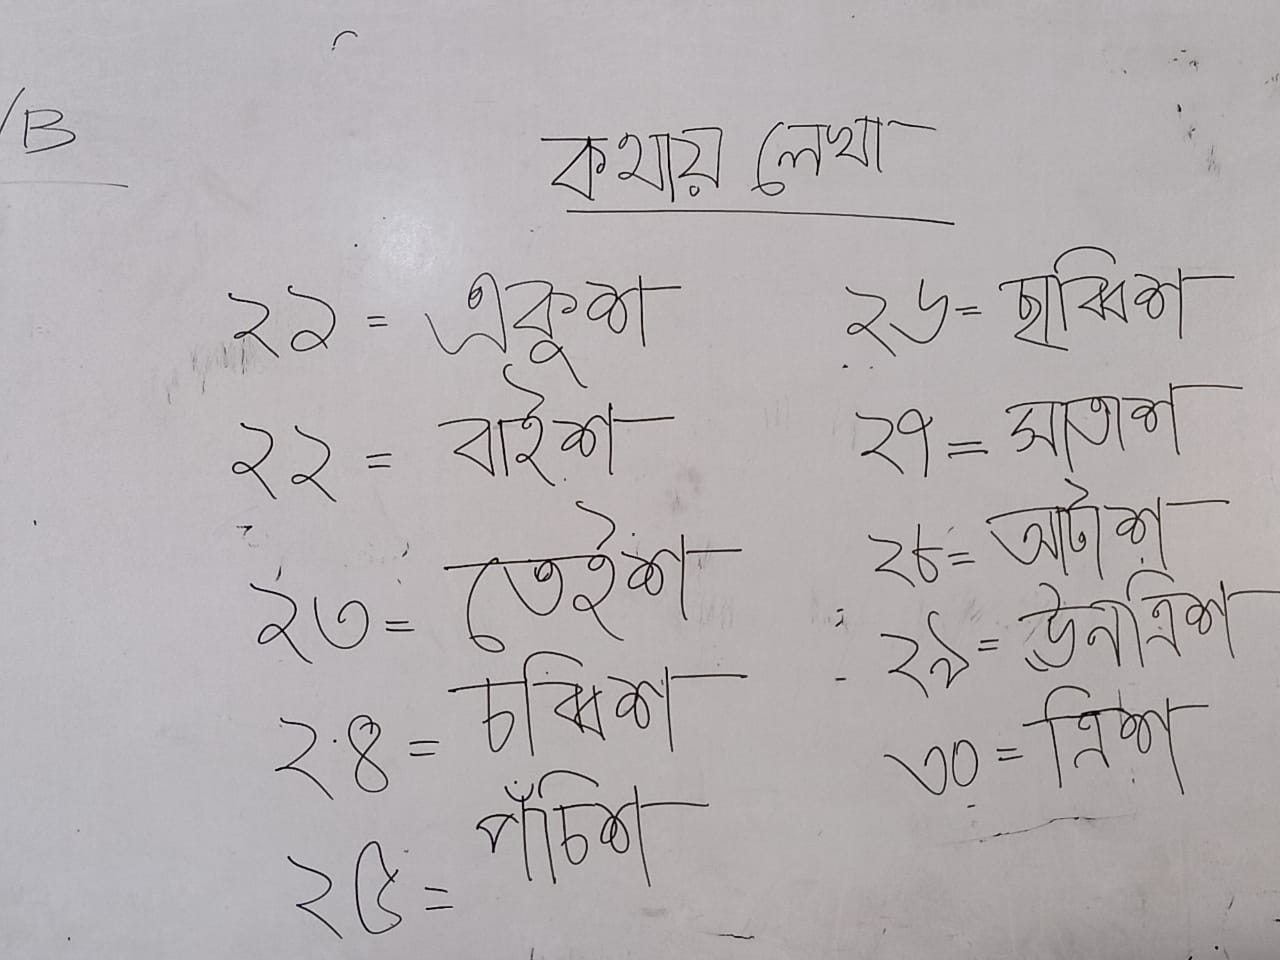 /B
কথায় লেখা
২১ = একুশ
২২ = বাইশ
২৩ = তেইশ
২৪ = চব্বিশ
২৫ = পঁচিশ
২৬ = ছাব্বিশ
২৭ = সাতাশ
২৮ = আটাশ
২৯ = উনত্রিশ
৩০ = ত্রিশ